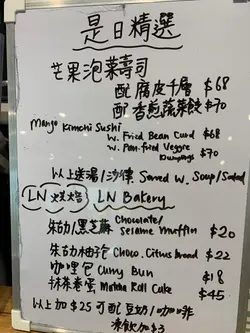 是日精選
芒果泡菜壽司
配 腐皮千層 $68
配 香煎蔬菜餃 $70
Mango Kimchi Sushi
w. Fried Bean Curd $68
w. Pan-fried Veggie Dumplings $70
以上送湯/沙律 Served w. Soup/Salad
LN 烘焙 LN Bakery
朱古力/黑芝麻 Chocolate/
Sesame Muffin $20
朱古力柚子包 Choco. Citrus bread $22
咖哩包 Curry Bun $18
抹茶卷蛋 Matcha Roll Cake $45
以上加 $25 可配豆奶/咖啡
凍飲加$3